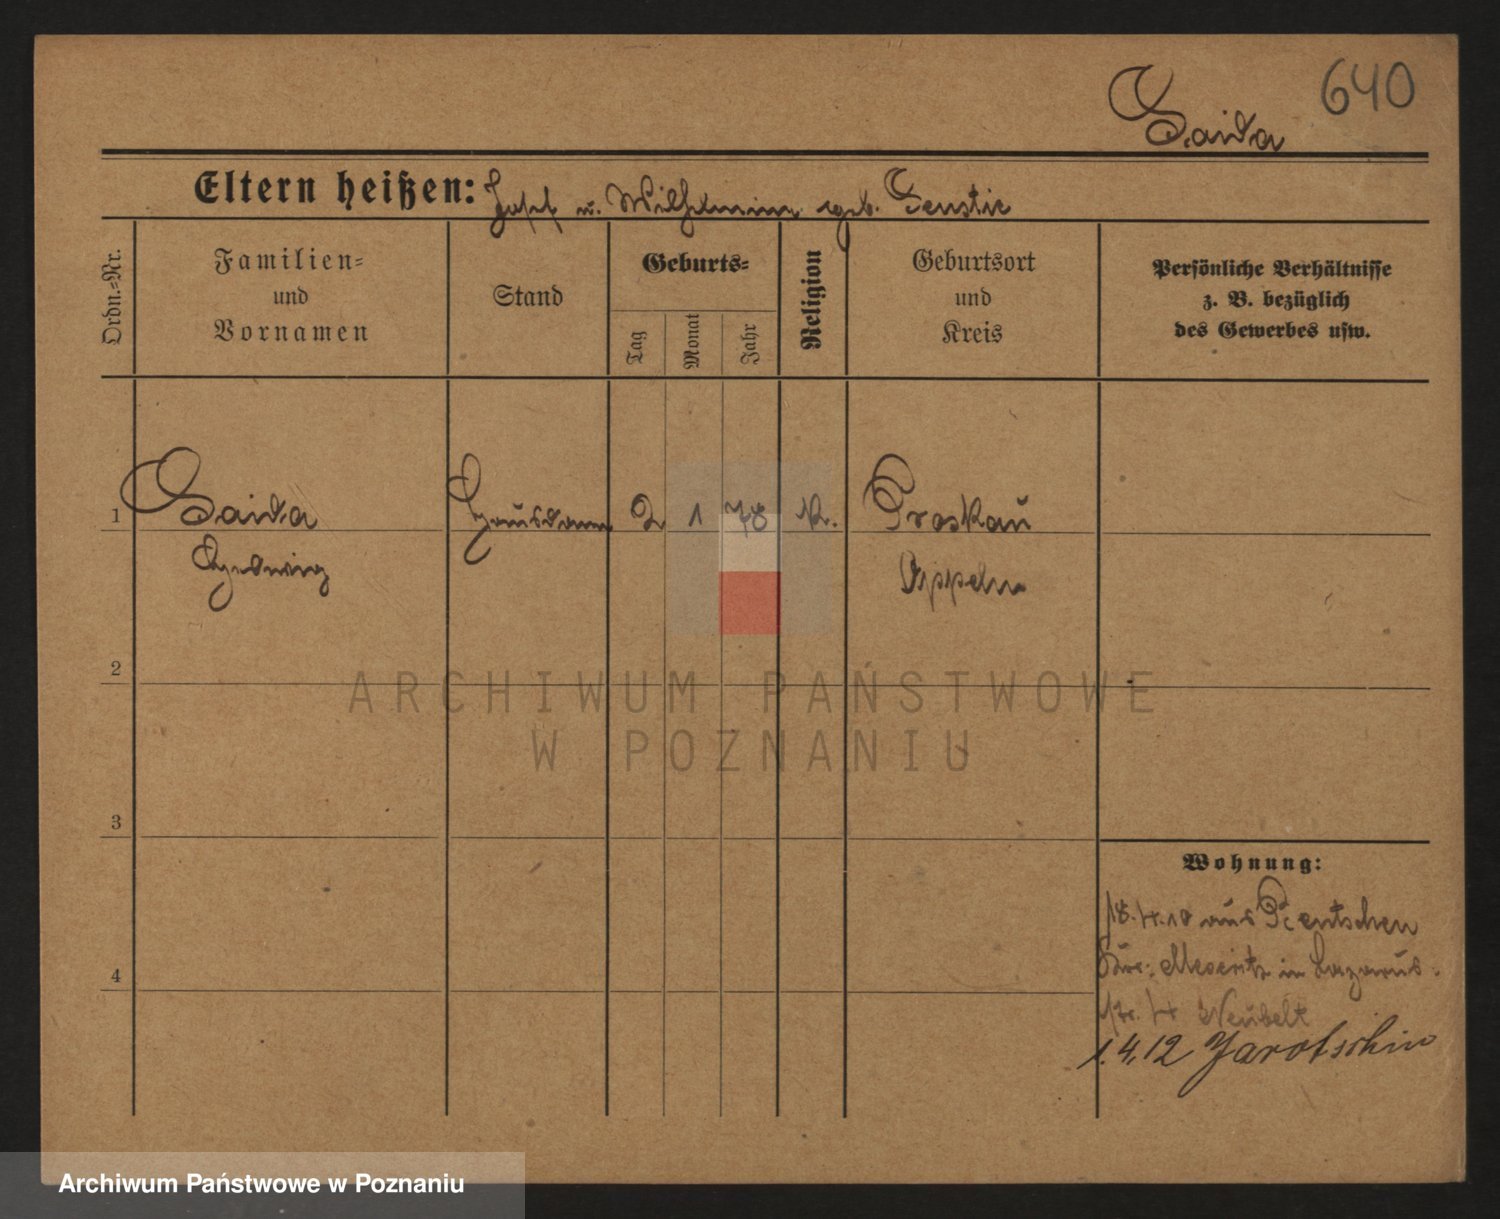 640
Gaida
Eltern heißen: Josef u. Wilhelmine geb.
Ordn.-Nr.
Familien-
und
Vornamen
Stand
Geburts-
Tag
Monat
Jahr
Religion
Geburtsort
und
Kreis
Persönliche Verhältnisse
z. B. bezüglich
des Gewerbes usw.
1 Gaida 2 1 78 K. Proskau
Hedwig Oppeln
2
3
4
Wohnung:
18.4.10 aus Bentschen
Meseritz in Lazarus-
str. Neubelt
1.4.12 Jarotschin
ARCHIWUM PAŃSTWOWE
W POZNANIU
Archiwum Państwowe w Poznaniu